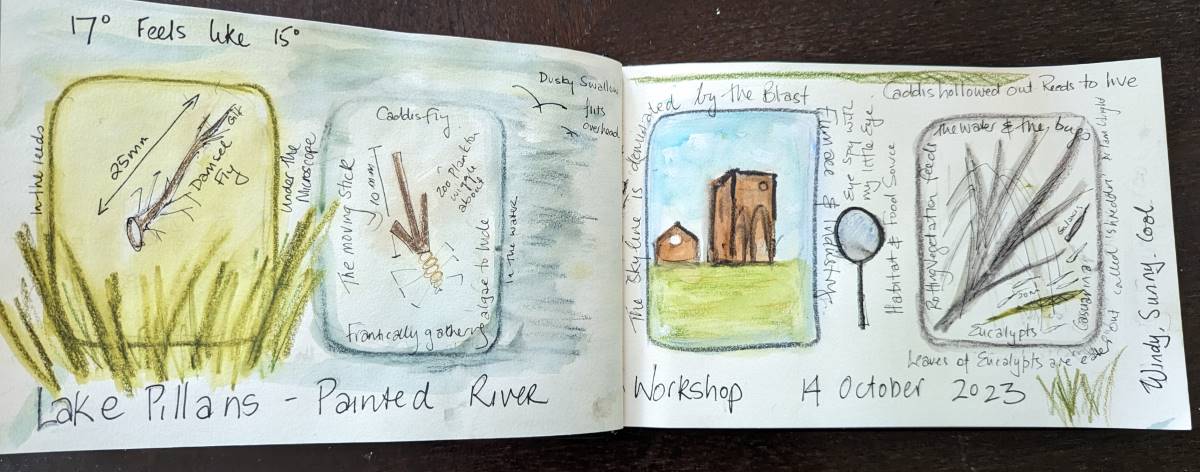 17° Feels like 15°
In the reeds
25mm
Gills
Damsel
Fly
Under the
Microscope
Caddis fly
The moving stick
10mm
200 Plankton
wiggle
about
Frantically gathering algae to hide
In the water
Dusky Swallow
flits
overhead
The Skyline is dominated by the Blast
Furnace & Industry.
Eye spy with
my little Eye
Habitat & Food Source
Caddis hollowed out Reeds to live
The water & the bugs
Rotting Vegetation Feeds
Casuarina
Eucalypts
Leaves of Eucalypts are eaten out called shredders
Windy, Sunny. Cool
Lake Pillans - Painted River Workshop 14 October 2023